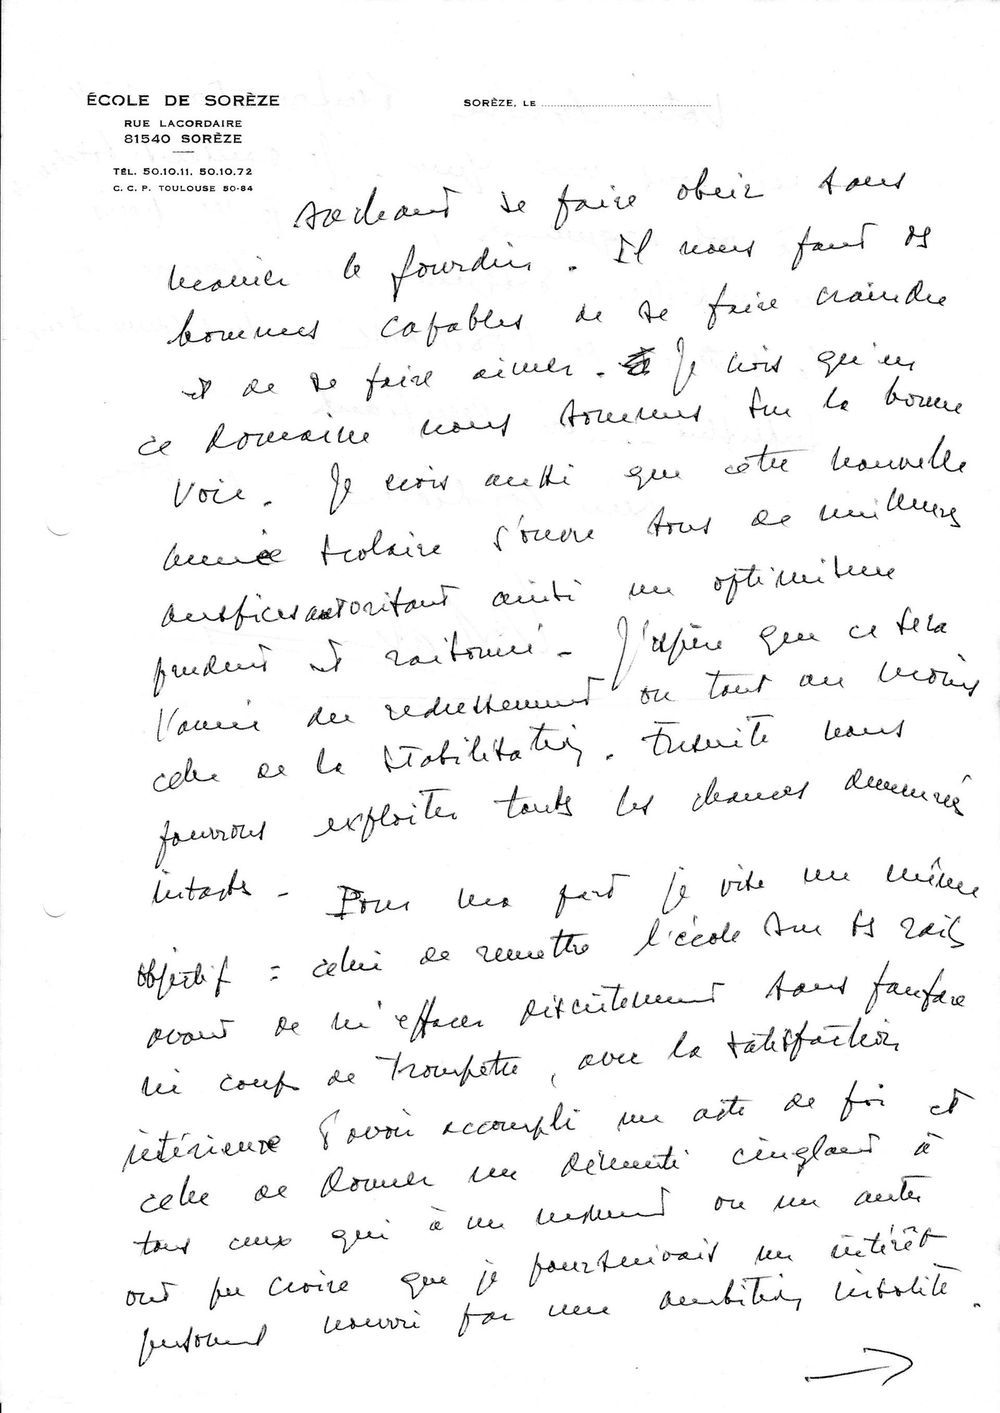 ÉCOLE DE SORÈZE
RUE LACORDAIRE
81540 SORÈZE
TÉL. 50.10.11. 50.10.72
C. C. P. TOULOUSE 50-84
SORÈZE, LE
sachant se faire obéir sans
manier le gourdin. Il nous faut des
hommes capables de se faire craindre
et de se faire aimer. Je crois qu'en
ce domaine nous sommes sur la bonne
voie. Je crois aussi que cette nouvelle
année scolaire s'ouvre sous de meilleurs
auspices autorisant ainsi un optimisme
prudent et raisonné - J'espère que ce sera
l'année du redressement ou tout au moins
celle de la stabilisation. Ensuite nous
pourrons exploiter toutes les chances demeurées
intactes - Pour ma part je vise un même
objectif : celui de remettre l'école sur ses rails
avant de m'effacer discrètement sans fanfare
ni coup de trompette, avec la satisfaction
intérieure d'avoir accompli un acte de foi et
celle de donner un démenti cinglant à
tous ceux qui à un moment ou un autre
ont pu croire que je poursuivais un intérêt
personnel nourri par une ambition insolite.
→